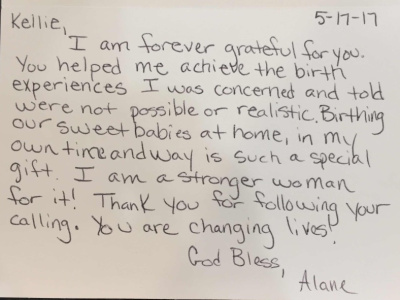 Kellie, 5-17-17
I am forever grateful for you.
You helped me achieve the birth
experiences I was concerned and told
were not possible or realistic. Birthing
our sweet babies at home, in my
own time and way is such a special
gift. I am a stronger woman
for it! Thank you for following your
calling. You are changing lives!
God Bless,
Alane